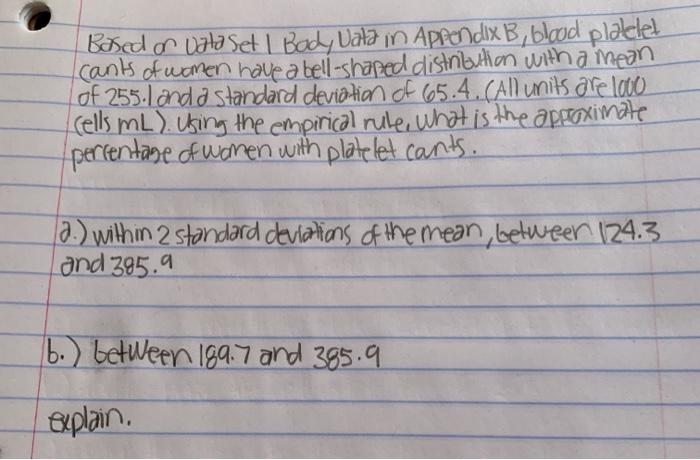 Based on Data Set 1 Body Data in Appendix B, blood platelet
cants of women have a bell-shaped distribution with a mean
of 255.1 and a standard deviation of 65.4. (All units are 1000
cells mL). Using the empirical rule, what is the approximate
percentage of women with platelet cants.
a.) within 2 standard deviations of the mean, between 124.3
and 385.9
b.) between 189.7 and 385.9
explain.